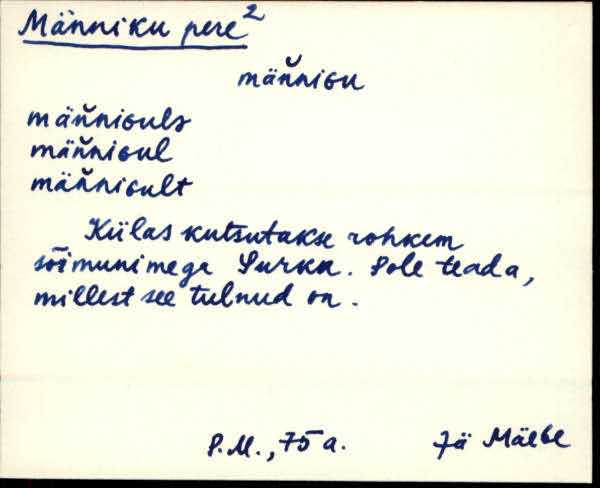 Männiku pere²
mäň̆niGu
mäňniGuls
mäňniGul
mäňniGult
Külas kutsutakse rohkem
sõimunimega Surka. Pole teada,
millest see tulnud on.
P.M., 75 a. Jä Mäebe